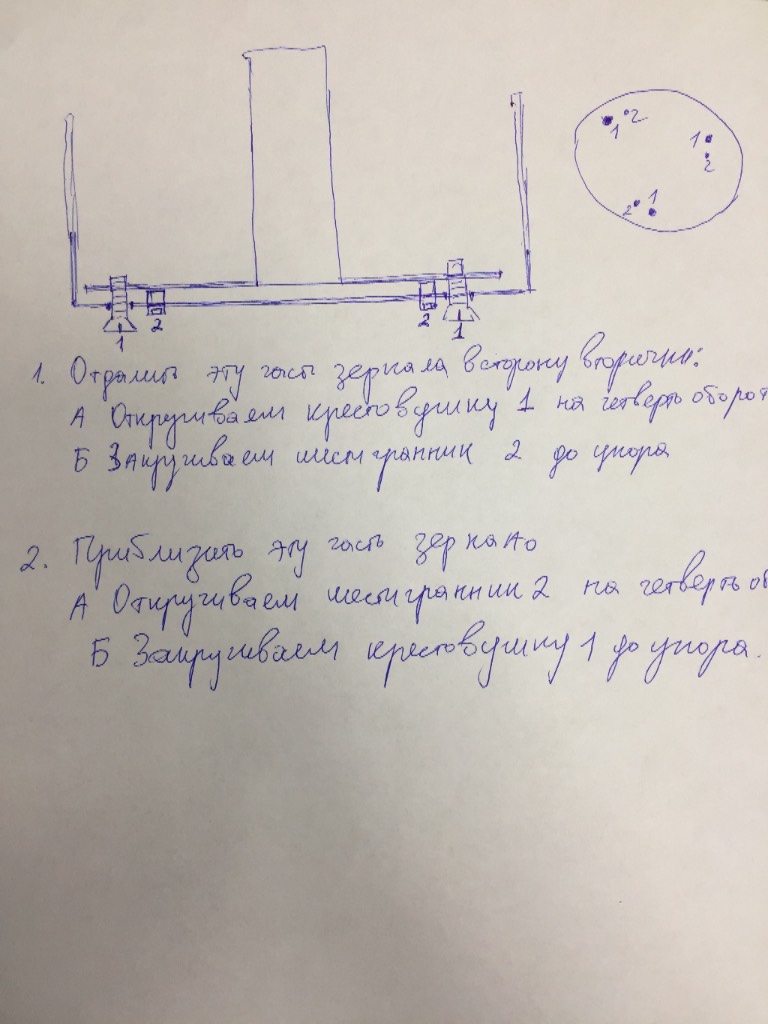 1 2
1
2
2 1
1 2 2 1
1. Отдалить эту часть зеркала в сторону вторички:
А Откручиваем крестовушку 1 на четверть оборот
Б Закручиваем шестигранник 2 до упора
2. Приблизить эту часть зеркало
А Откручиваем шестигранник 2 на четверть об
Б Закручиваем крестовушку 1 до упора.